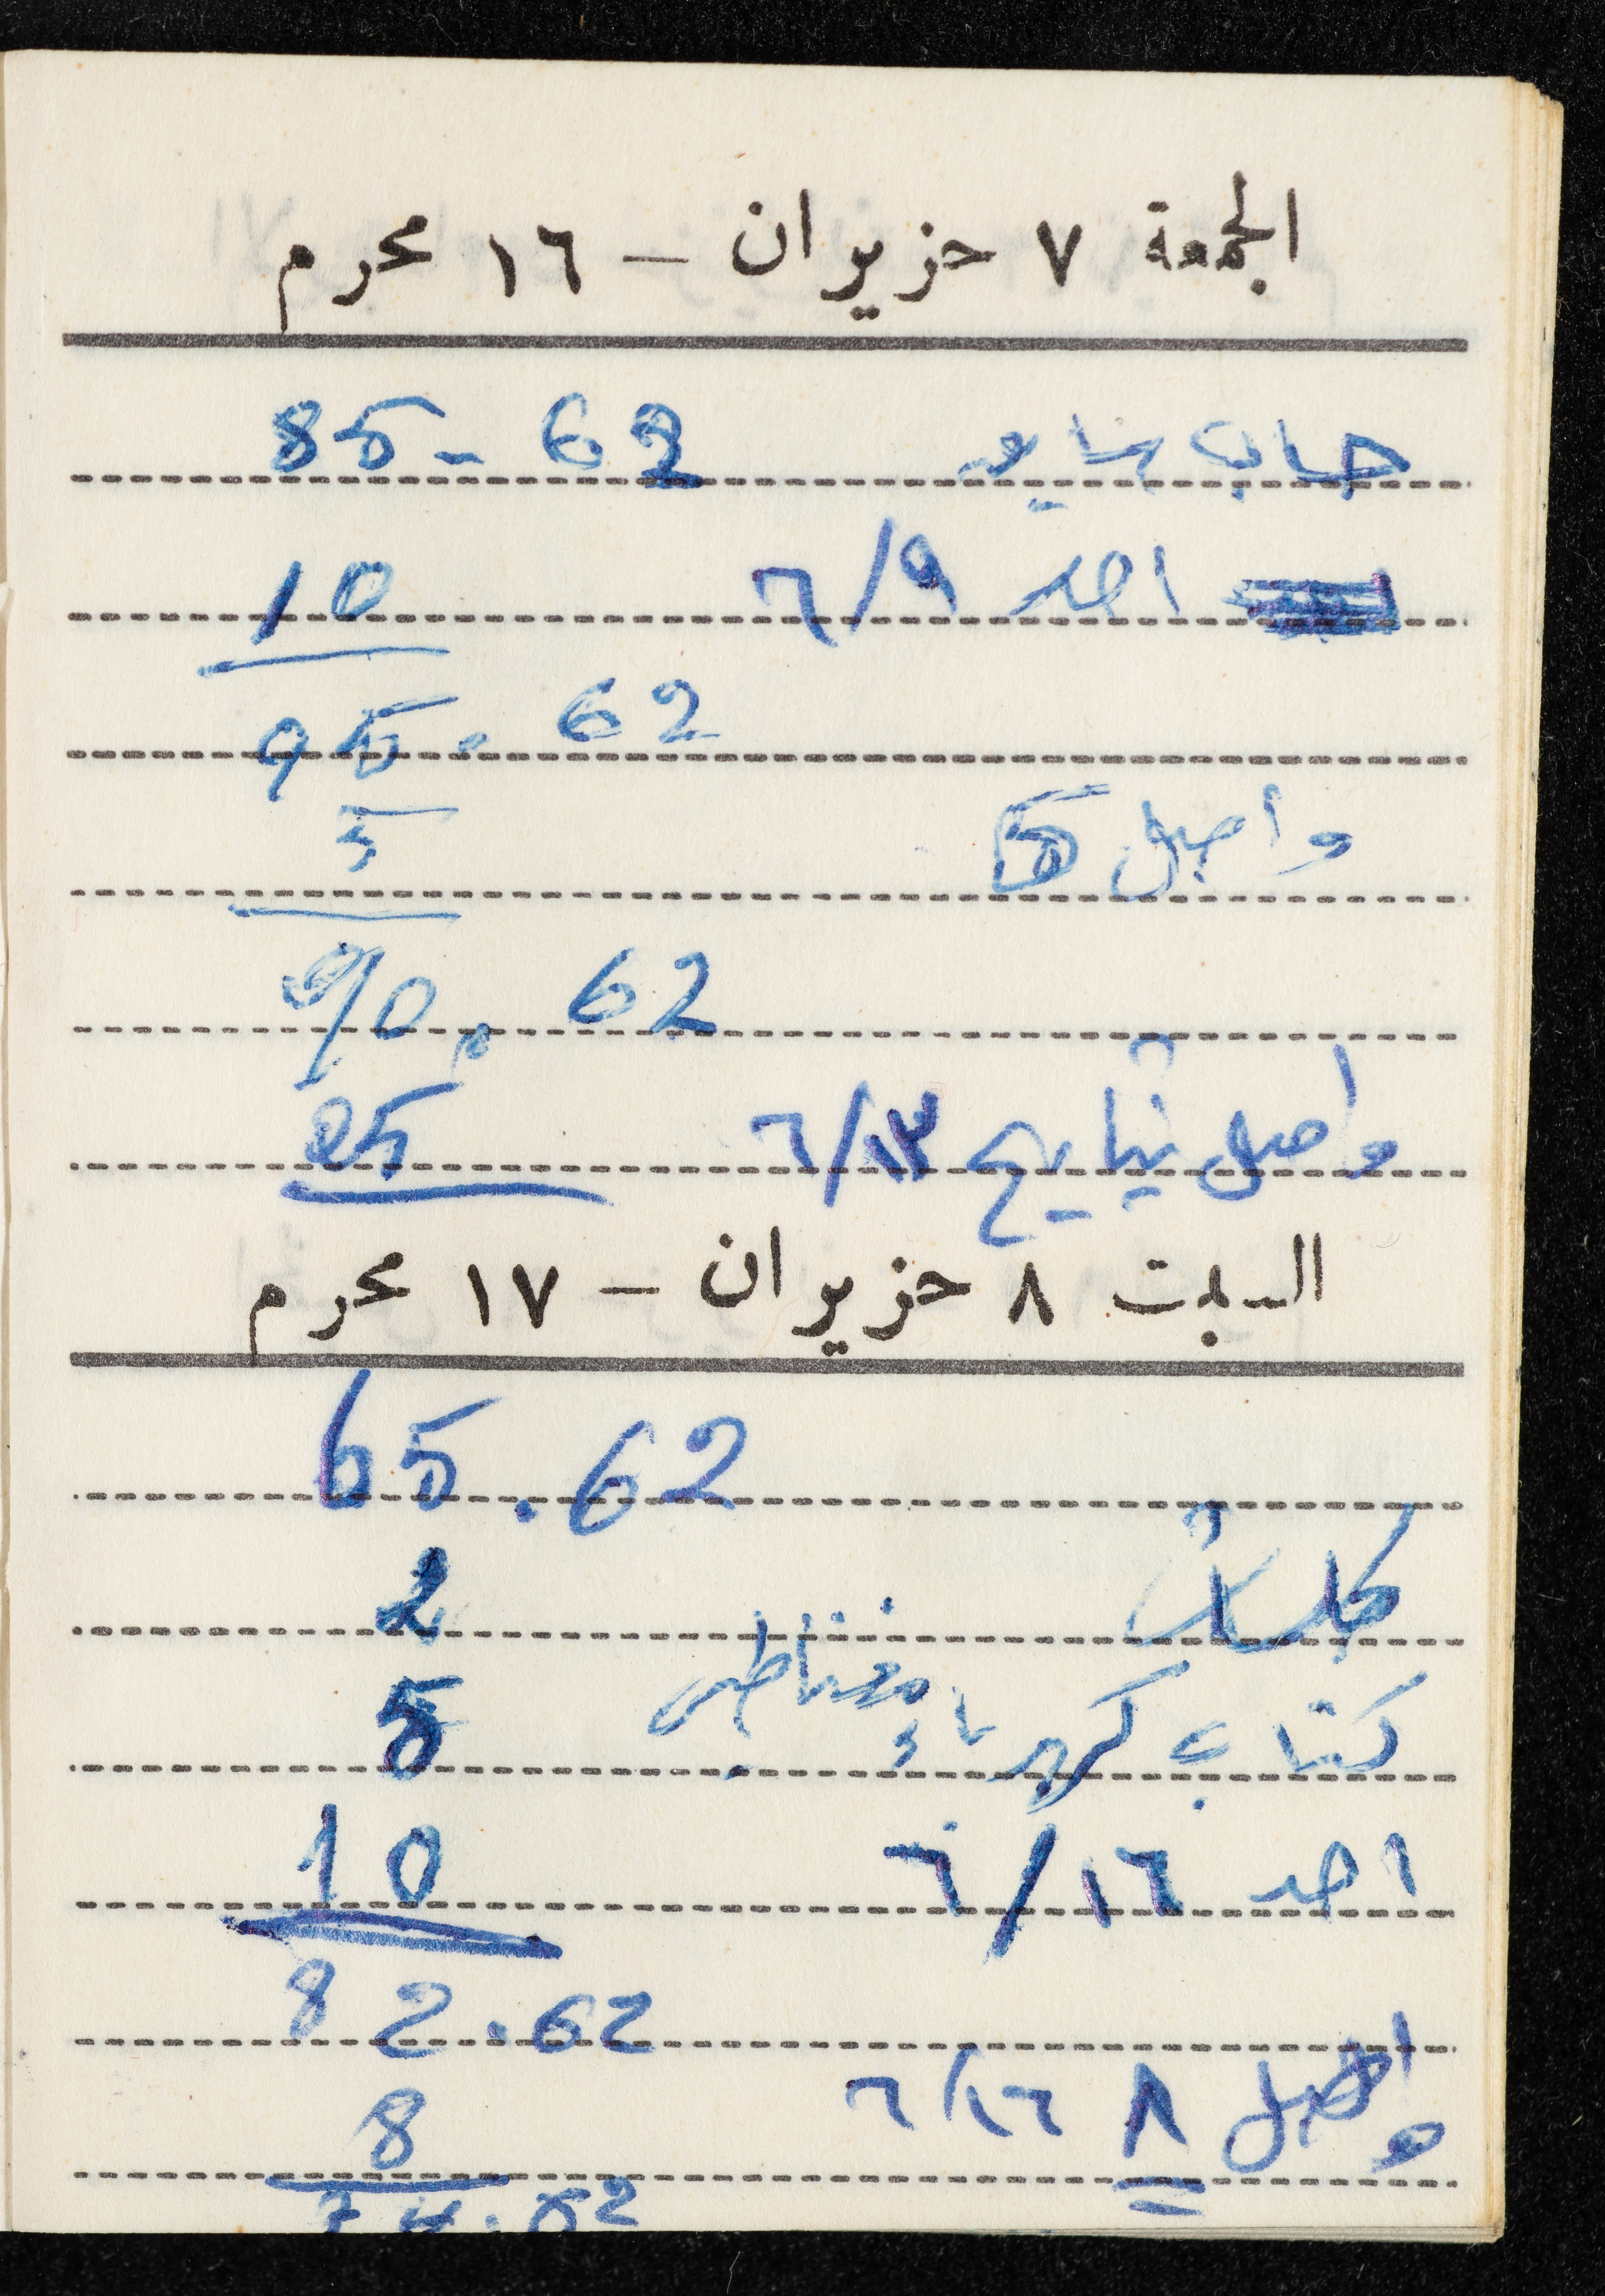 الجمعة ٧ حزيران – ١٦ محرم
حساب سابق 85 - 62
احد ٦/٩ 10
95 . 62
واصل 5 5
90 . 62
واصل بتاريخ ٦/١٣ 25
السبت ٨ حزيران – ١٧ محرم
65 . 62
2
كتاب كهرباء ومغناطيس 5
احد ٦/١٦ 10
82 . 62
واصل ٨ ٦/١٦ 8
74 . 62